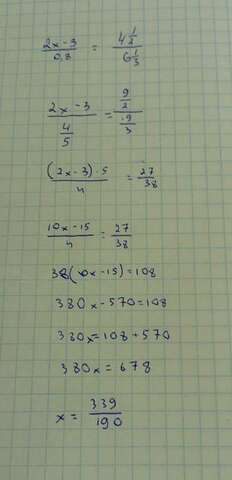 (2x-3)/0,8 = 4 1/2 / 6 1/3
(2x-3)/(4/5) = (9/2)/(19/3)
((2x-3)·5)/4 = 27/38
(10x-15)/4 = 27/38
38(10x-15)=108
380x-570=108
380x=108+570
380x=678
x=339/190